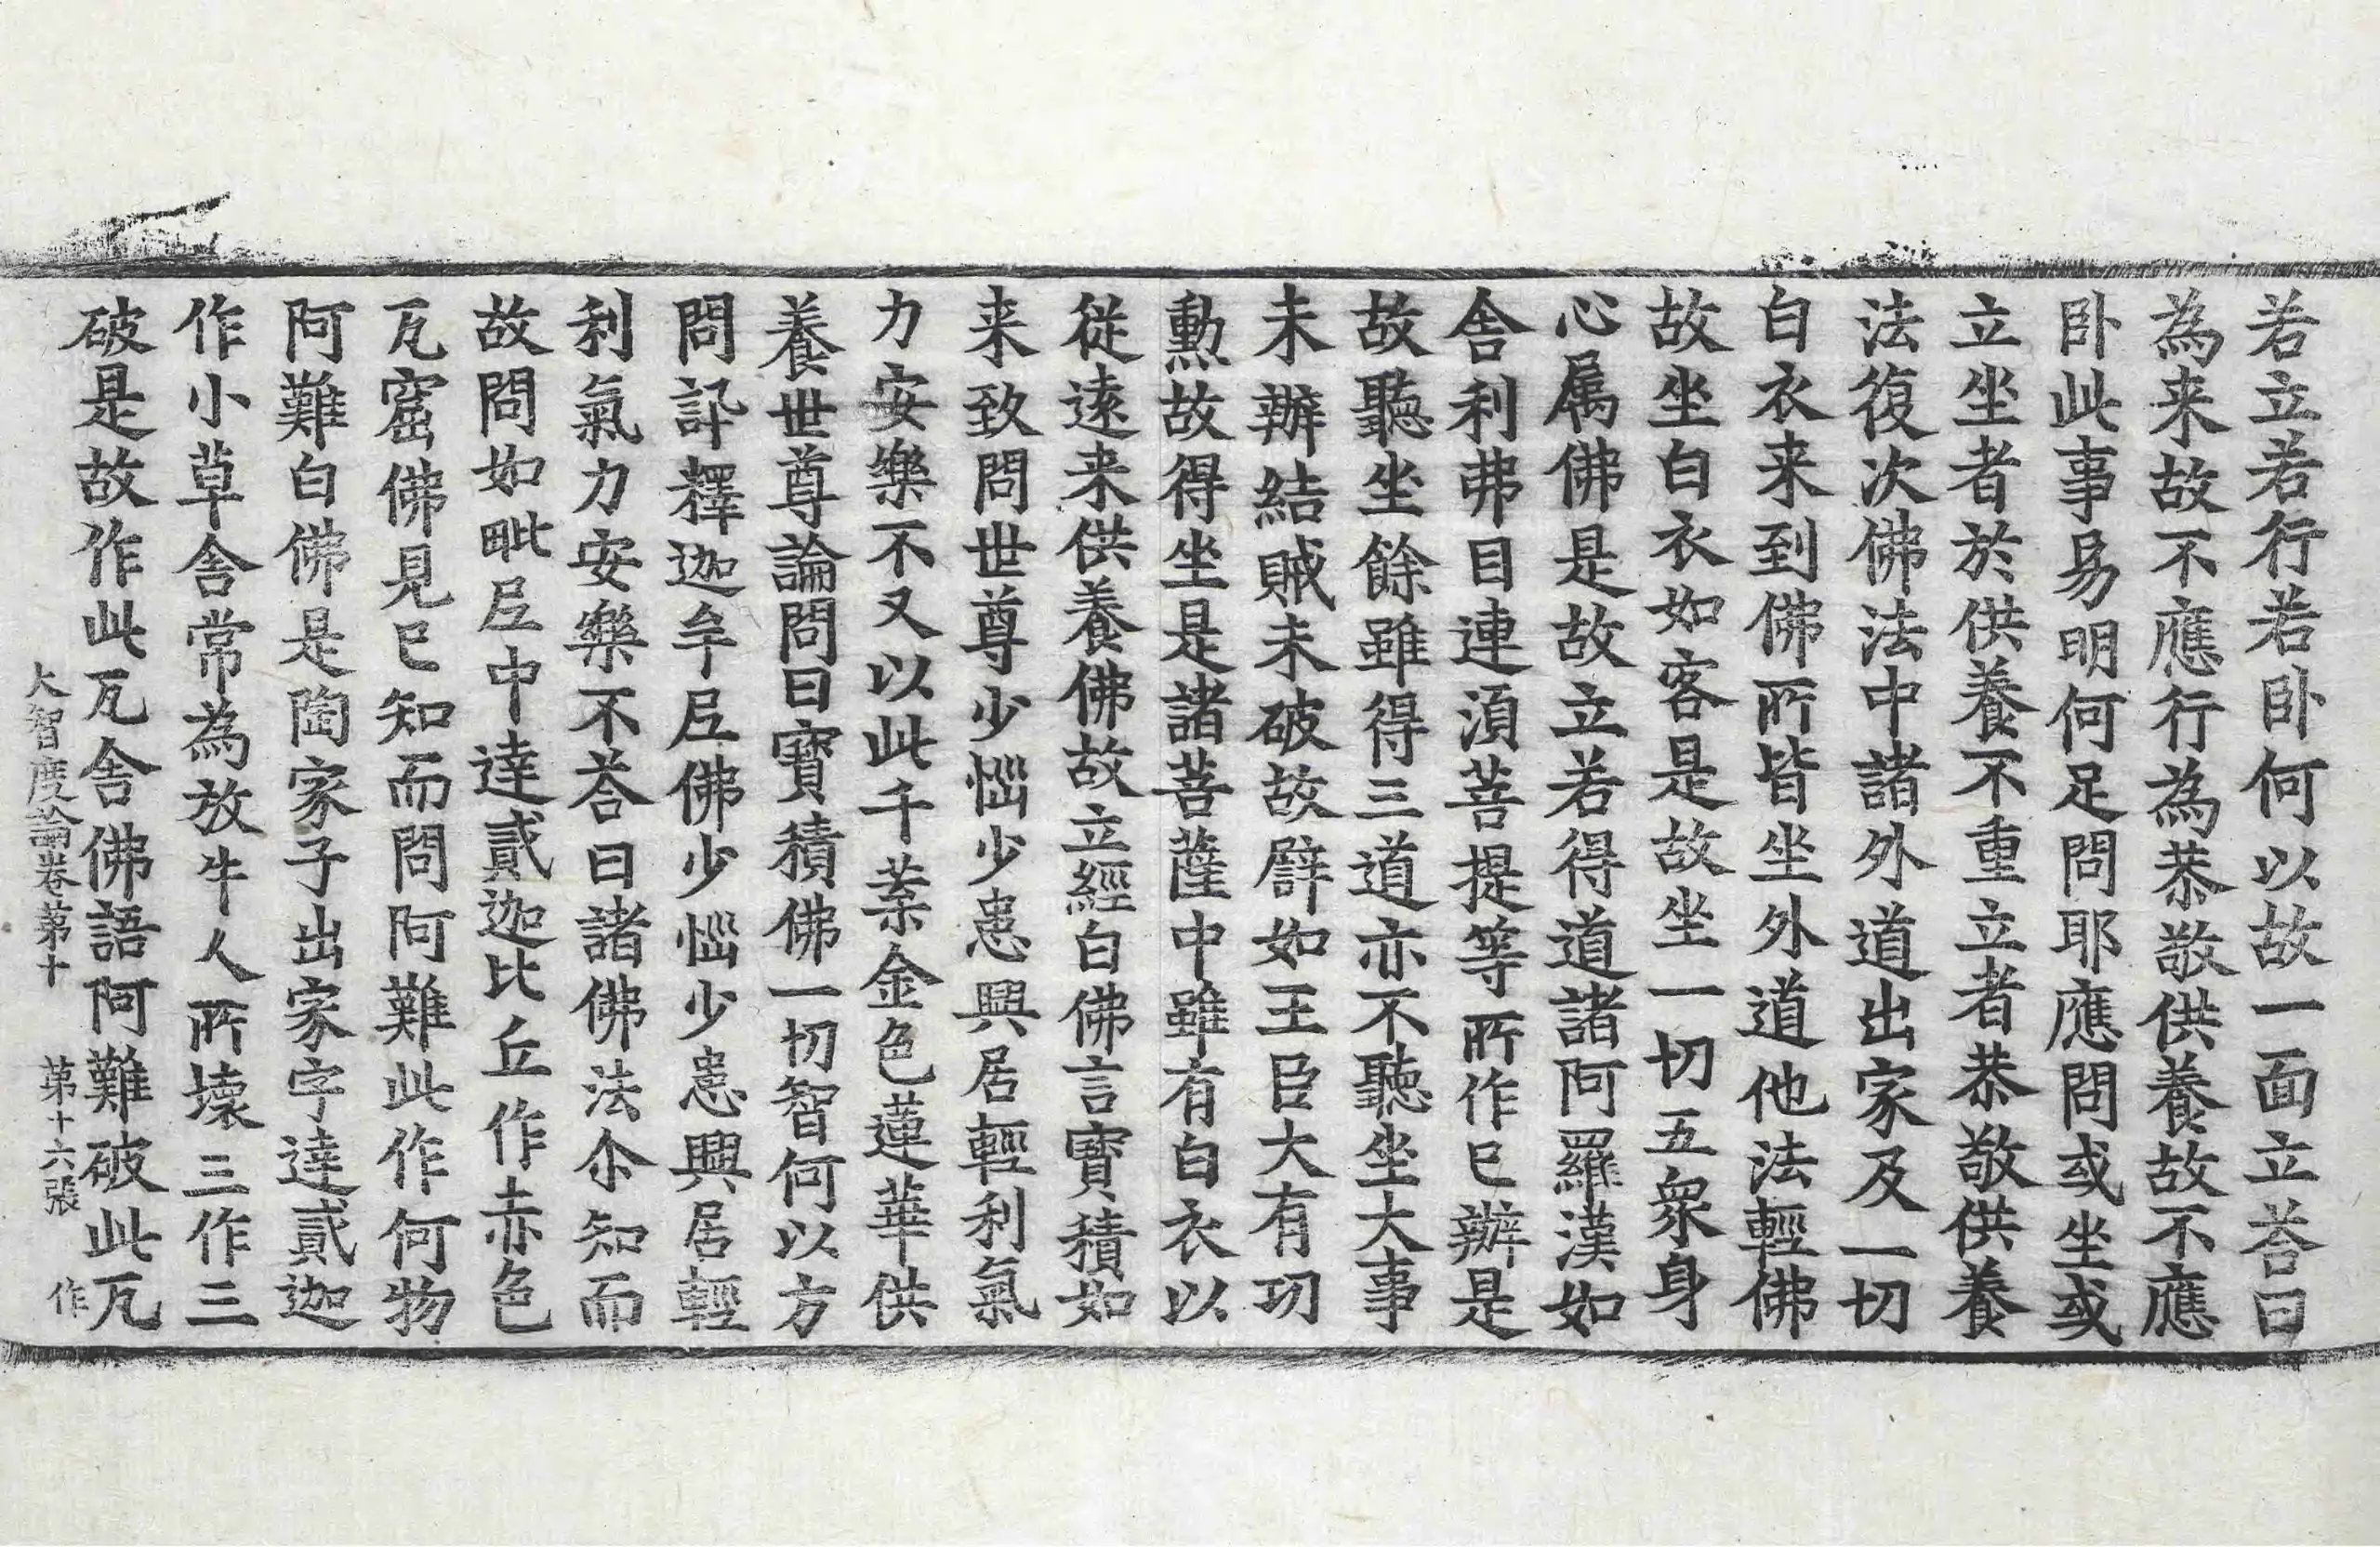 若立若行若卧何以故一面立荅曰
為来故不應行為恭敬供養故不應
卧此事易明何足問耶應問或坐或
立坐者於供養不重立者恭敬供養
法復次佛法中諸外道出家及一切
白衣来到佛所皆坐外道他法輕佛
故坐白衣如客是故坐一切五眾身
心属佛是故立若得道諸阿羅漢如
舍利弗目連湏菩提等所作已辦是
故聽坐餘雖得三道亦不聽坐大事
未辦結賊未破故譬如王臣大有功
勲故得坐是諸菩薩中雖有白衣以
從遠来供養佛故立經白佛言寳積如
来致問世尊少惱少患興居輕利氣
力安樂不又以此千葉金色蓮華供
養世尊論問曰寳積佛一切智何以方
問訊釋迦牟尼佛少惱少患興居輕
利氣力安樂不荅曰諸佛法尒知而
故問如毗尼中達貳迦比丘作赤色
瓦窟佛見已知而問阿難此作何物
阿難白佛是陶家子出家字達貳迦
作小草舍常為放牛人所壞三作三
破是故作此瓦舍佛語阿難破此瓦
大智度論卷第十 第十六張 作